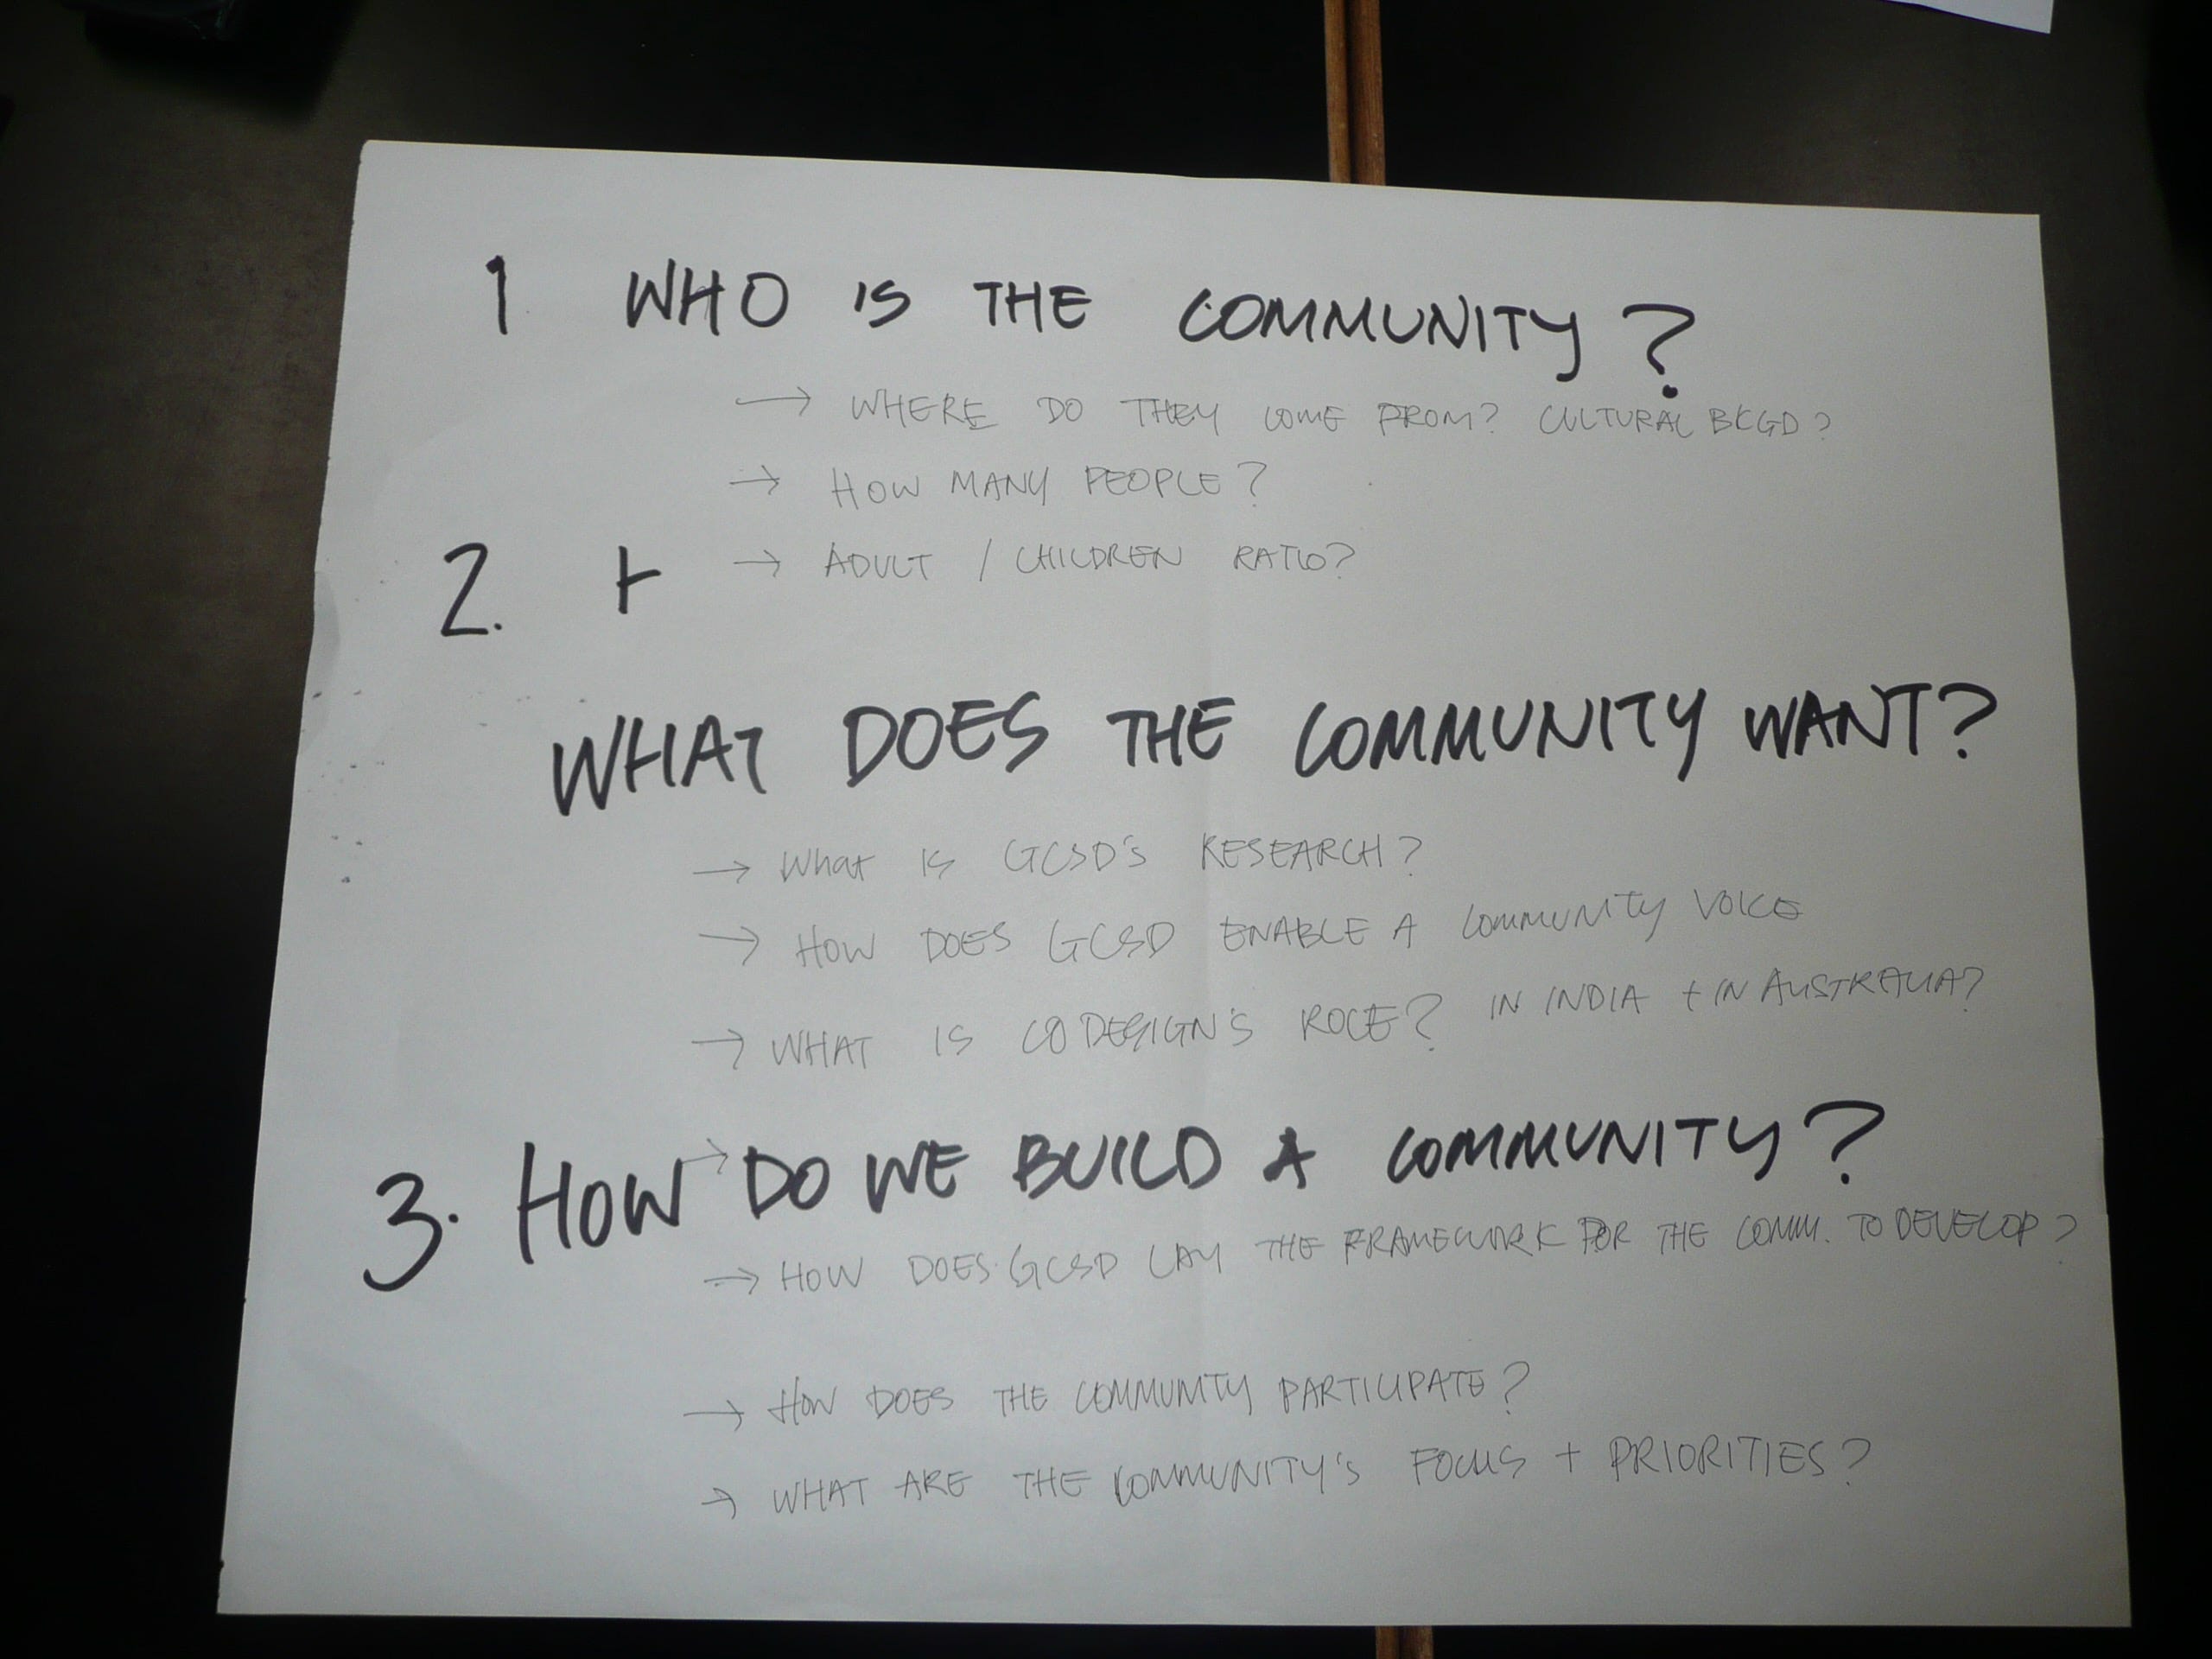 1 WHO IS THE COMMUNITY?
→ WHERE DO THEY COME FROM? CULTURAL BKGD?
→ HOW MANY PEOPLE?
2. + → ADULT / CHILDREN RATIO?
WHAT DOES THE COMMUNITY WANT?
→ What IS GCSD'S RESEARCH?
→ HOW DOES GCSD ENABLE A COMMUNITY VOICE
→ WHAT IS CODESIGN'S ROLE? IN INDIA + IN AUSTRALIA?
3. HOW → DO WE BUILD A COMMUNITY?
→ HOW DOES GCSD LAY THE FRAMEWORK FOR THE COMM. TO DEVELOP?
→ HOW DOES THE COMMUNITY PARTICIPATE?
→ WHAT ARE THE COMMUNITY'S FOCUS + PRIORITIES?